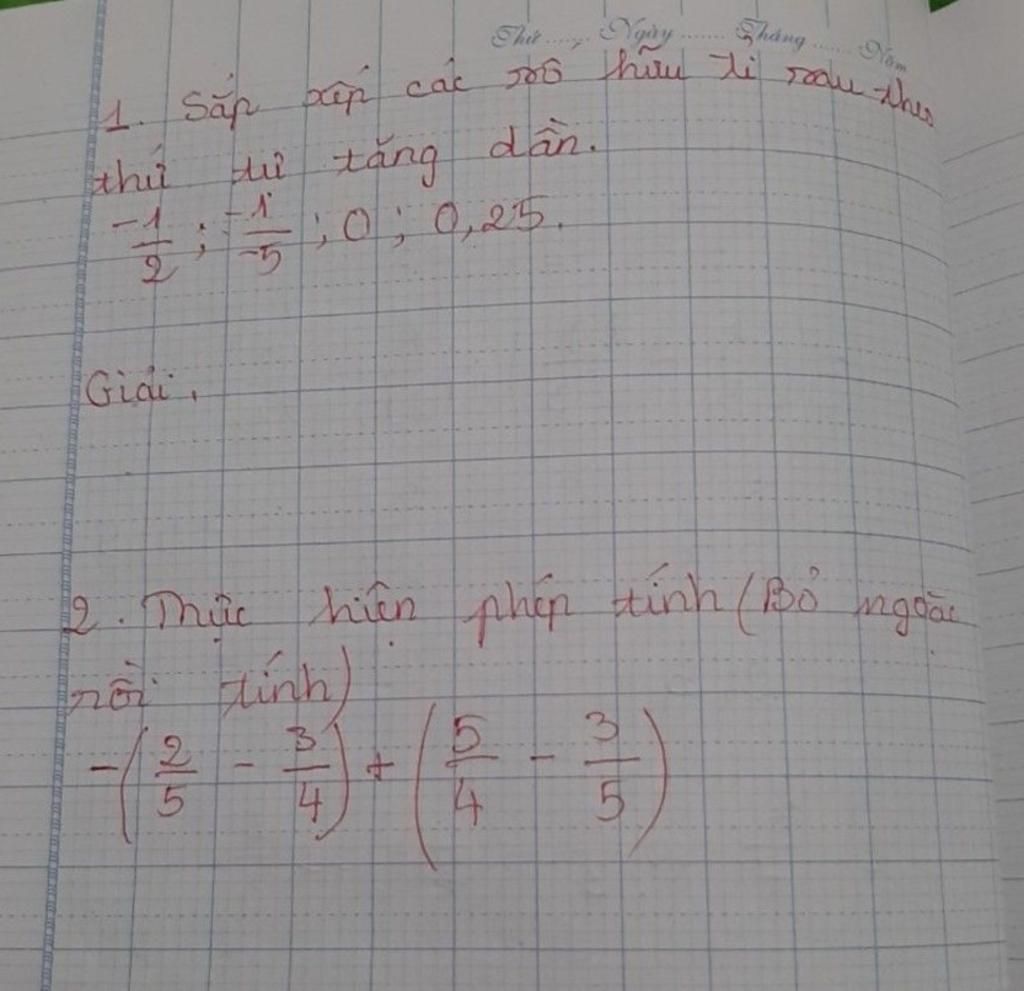 Thứ ......, Ngày ...... Tháng ...... Năm
1. Sắp xếp các số hữu tỉ sau theo
thứ tự tăng dần.
-1/2 ; -1/-5 ; 0 ; 0,25.
Giải.
2. Thực hiện phép tính (Bỏ ngoặc
rồi tính)
-(2/5 - 3/4) + (5/4 - 3/5)